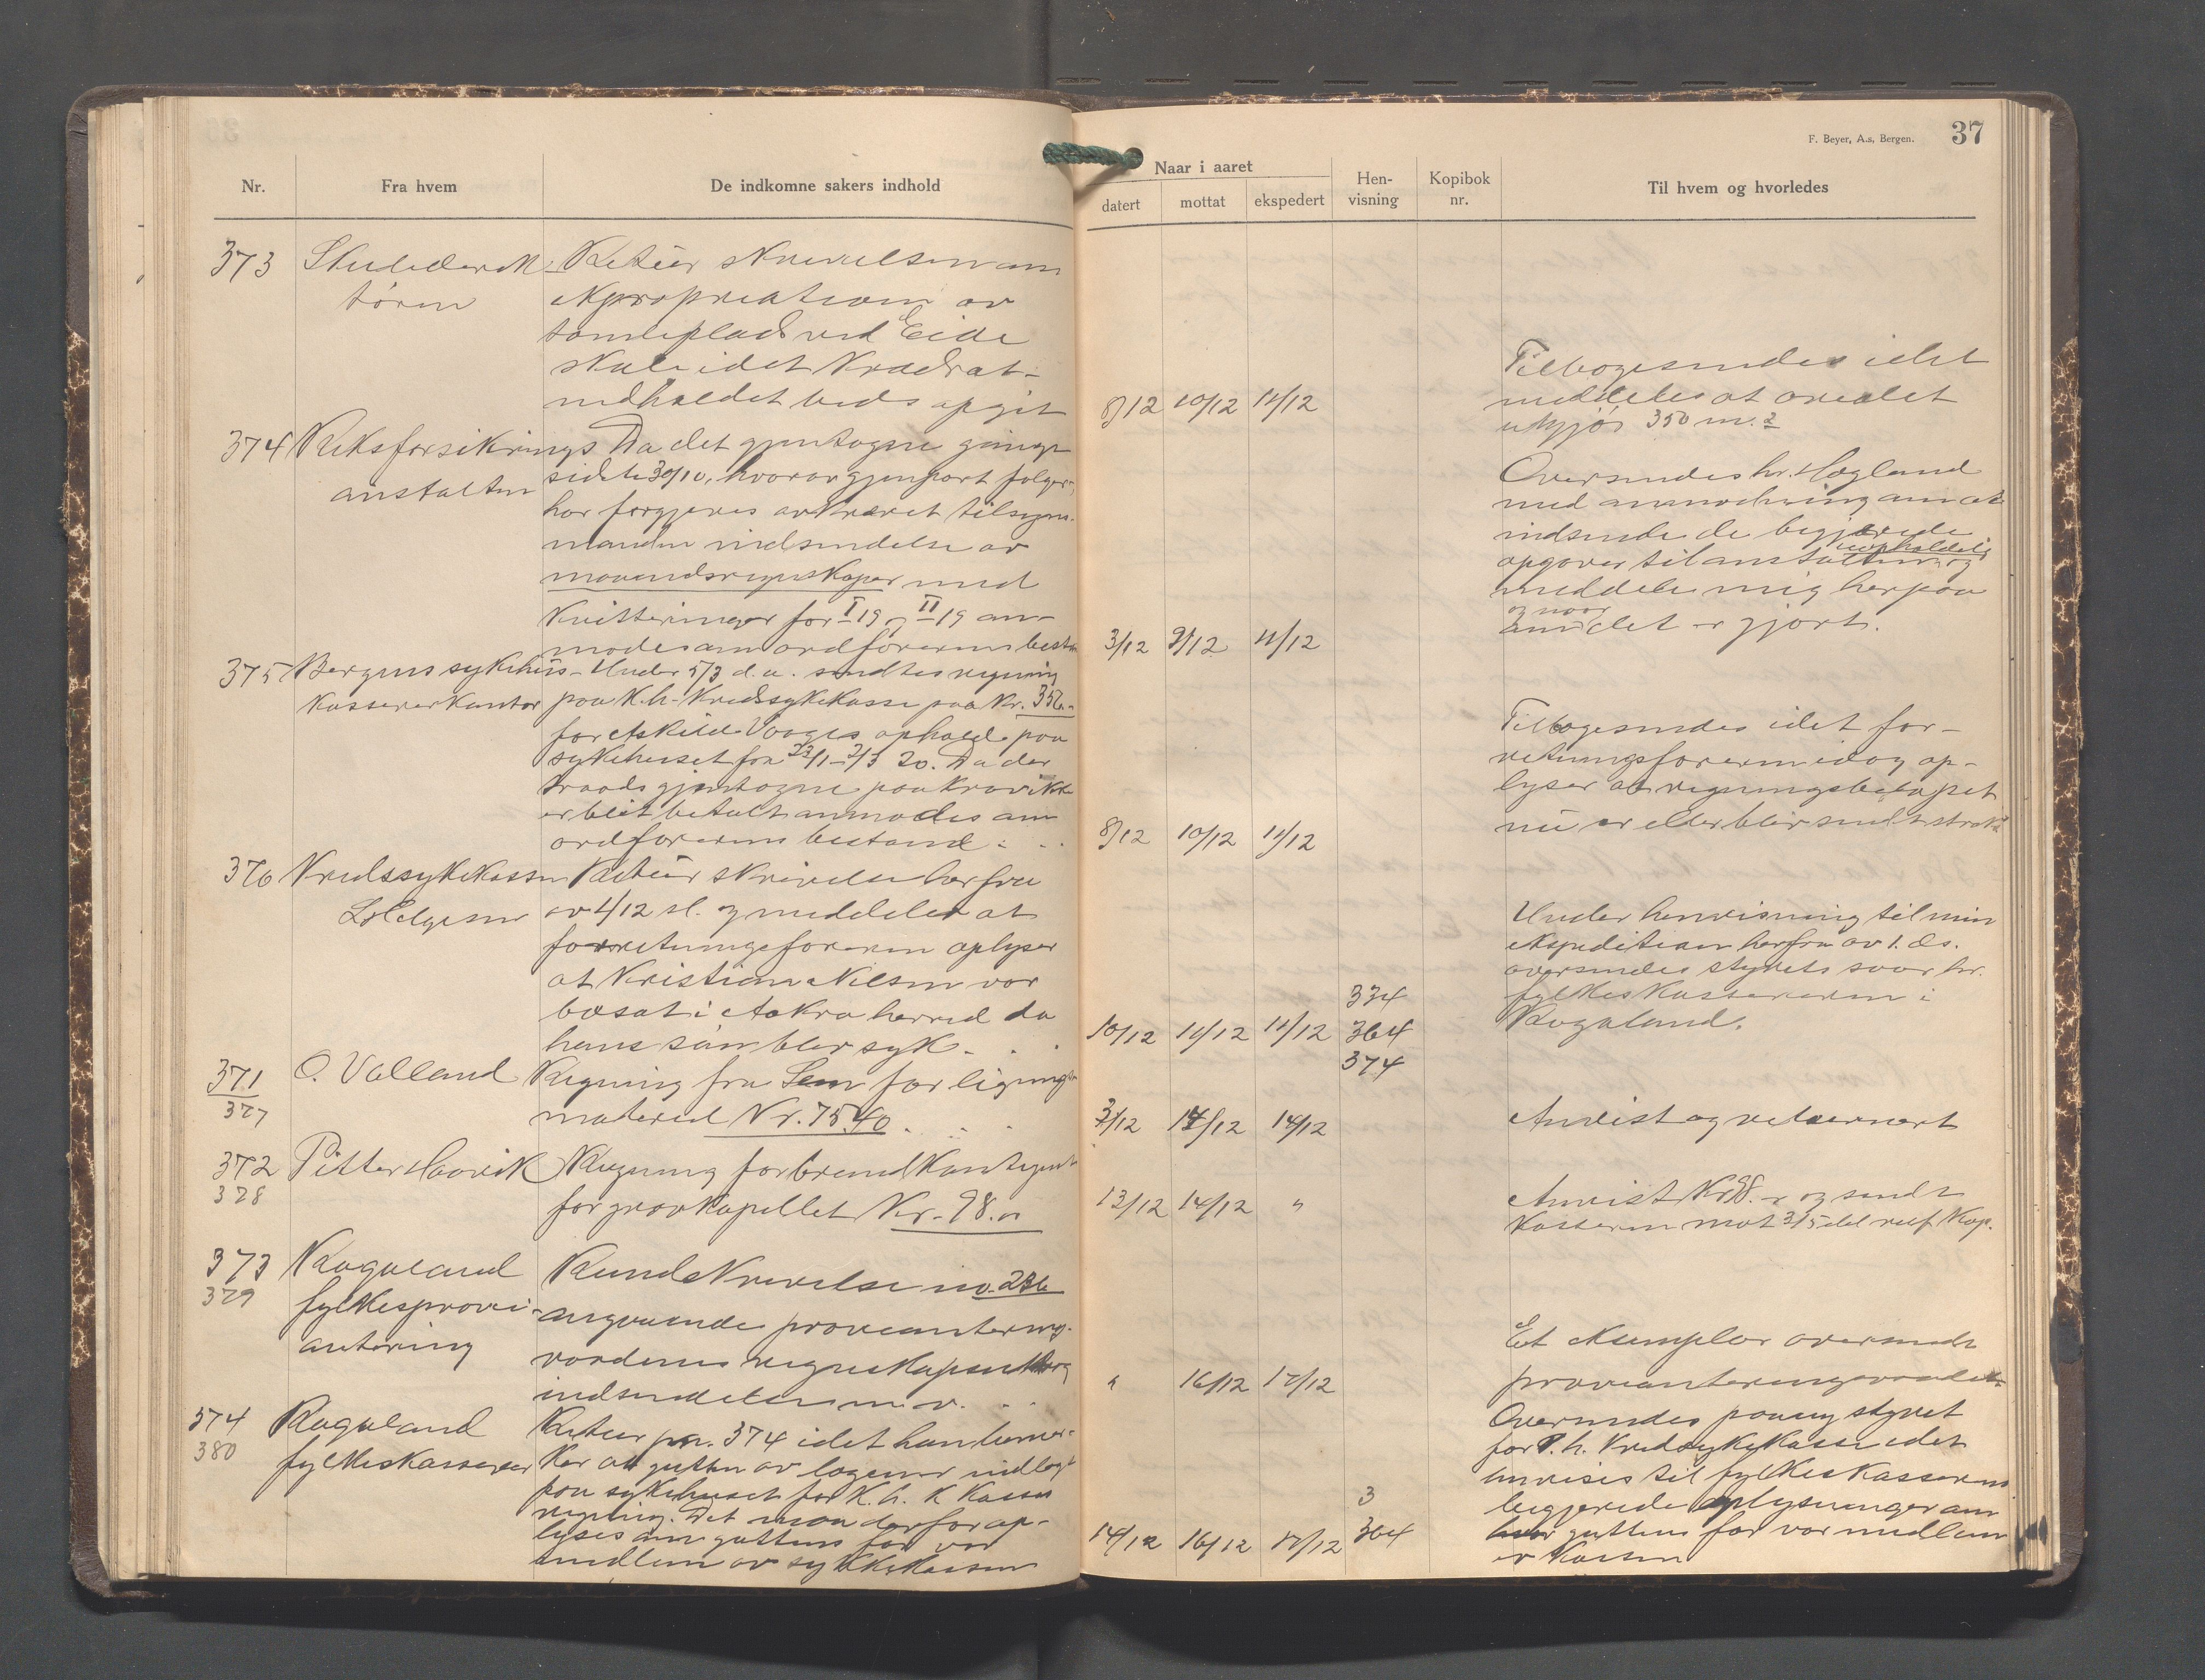 F. Beyer, A.s, Bergen. 37
Nr. Fra hvem De indkomne sakers indhold
Naar i aaret
datert mottat ekspedert
Hen-
visning
Kopibok
nr.
Til hvem og hvorledes
373 Skuledirek-
tøren
Retur skrivelsen om
ekspropriation av
tomteplads ved Eide
skule idet kvadrat-
indholdet beds opgit
8/12 10/12 11/12
Tilbagesendes idet
meddeles at arealet
utgjør 350 m.2
374 Riksforsikrings
anstalten
Da det gjentagne gange
sidste 30/10, hvorav gjenpart følger,
har forgjæves avkrævet tilsyns-
manden indsendelse av
maanedsregnskaper med
Kvitteringer for I 19 og II 19 an-
modes om ordførerens bestand
3/12 9/12 11/12
Oversendes hr. Høgland
med anmodning om at
indsende de begjærede
opgaver til anstalten uopholdelig og
meddele mig herpaa
og naar
det er gjort.
375 Bergens sykehus-
kassererkontor
Under 5/3 d.a. sendtes regning
paa K.h. Kredssykekasse paa Kr. 356.-
for Askild Vaages ophold paa
sykehuset fra 23/1-2/3 20. Da der
trods gjentagne paakrav ikke
er blit betalt anmodes om
ordførerens bestand.
8/12 10/12 11/12
Tilbagesendes idet for-
retningsføreren idag op-
lyser at regningsbeløpet
nu er eller blir sendt straks
376 Kredssykekassen
L. Helgesen
Retur skrivelse herfra
av 4/12 sl. og meddeler at
forretningsføreren oplyser
at Kristian Nilsen var
bosat i Aakra herred da
hans søn blev syk.
10/12 11/12 11/12
334
364
374
Under henvisning til min
ekspedition herfra av 1. ds.
oversendes styrets svar hr.
fylkeskassereren i
Rogaland.
371
377
O. Valland
Regning fra Sem for lignings-
materiel Kr. 75.40
3/12 14/12 14/12
Anvist og returnert
372
378
Pitter Haavik
Regning for brandkontingent
for gravkapellet Kr. 98.00
13/12 14/12 "
Anvist Kr 98.- og sendt
kasseren mot 3/5 del
373
379
Rogaland
fylkesprovi-
antering
Rundskrivelse no. 236
angaaende provianterings-
raadenes
indsendelse m.v.
" 16/12 17/12
Et eksemplar oversendt
provianteringsraadet
374
380
Rogaland
fylkeskasserer
Retur pn. 374 idet han bemer-
ker at gutten av lægen er indlagt
paa sykehuset for K.h. K Kasses
regning. Det maa derfor op-
lyses om guttens far var
medlem av sykekassen
14/12 16/12 17/12
3
364
Oversendes paany styret
for K.h. Kredssykekasse idet
henvises til fylkeskasserens
begjærede oplysninger om
guttens far var medlem
av kassen